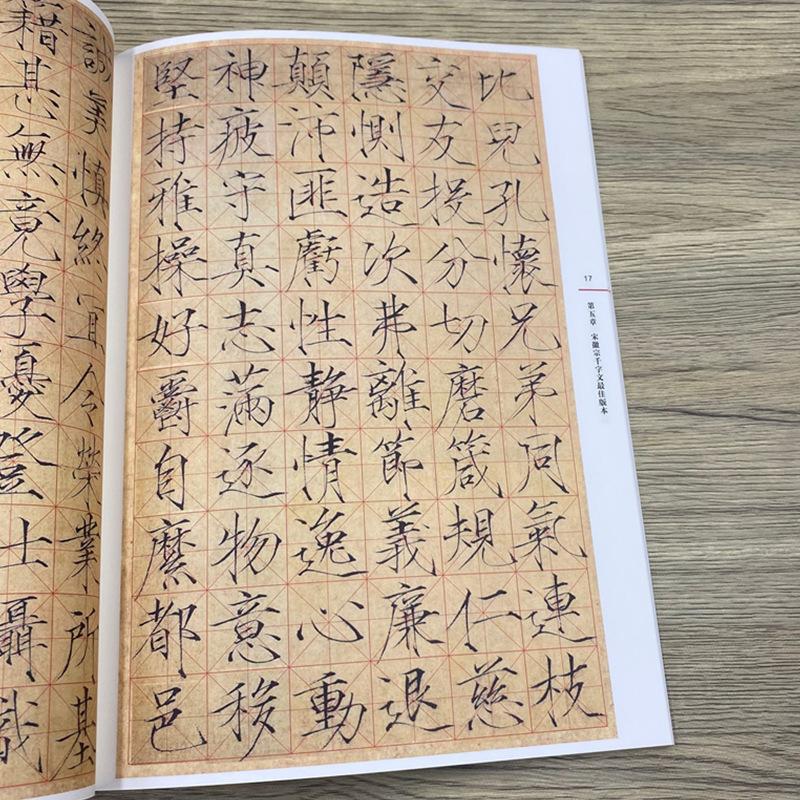 17
第五章 宋徽宗千字文最佳版本
比兒孔懷兄弟同氣連枝
交友投分切磨箴規仁慈
隱惻造次弗離節義廉退
顛沛匪虧性靜情逸心動
神疲守真志滿逐物意移
堅持雅操好爵自縻都邑
誠美慎終宜令榮業所基
籍甚無竟學優登仕攝職